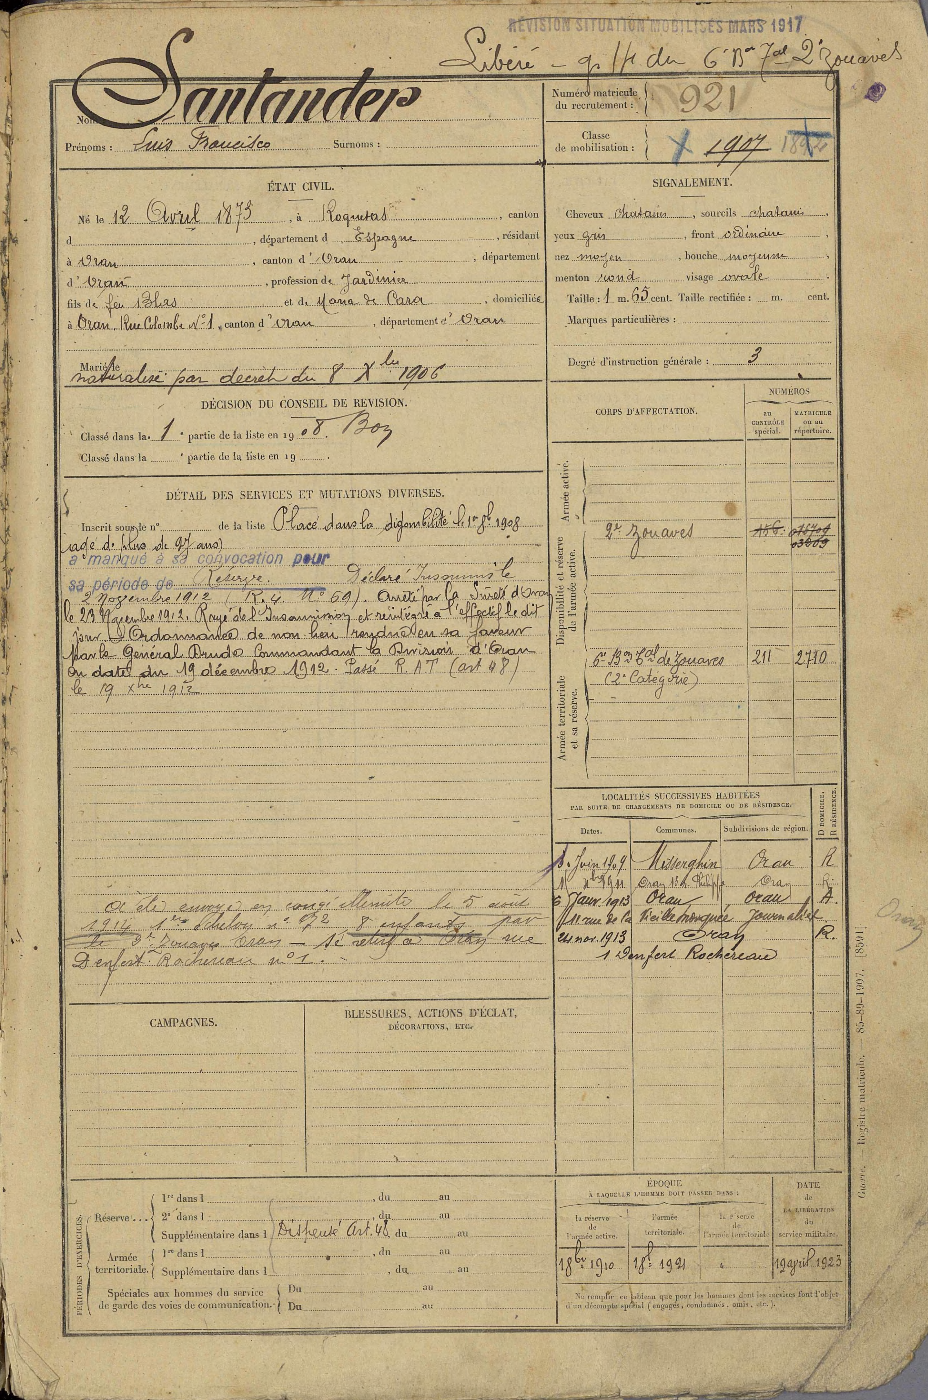 RÉVISION SITUATION MOBILISÉS MARS 1917
Libéré - du 6e Bon Tal 2e Zouaves
Nom : Santander
Prénoms : Luis Francisco Surnoms :
Numéro matricule du recrutement : 921
Classe de mobilisation : 1907 1892
ÉTAT CIVIL.
Né le 12 Avril 1873, à Roquetas, canton
d , département d Espagne, résidant
à Oran, canton d'Oran, département
d'Oran, profession de Jardinier
fils de feu Blas et de Maria de Cara, domiciliés
à Oran, Rue Colombe No 1, canton d'Oran, département d'Oran
Marié le
naturalisé par décret du 8 Xbre 1906
DÉCISION DU CONSEIL DE REVISION.
Classé dans la 1e partie de la liste en 1908. Bon
Classé dans la e partie de la liste en 19
SIGNALEMENT.
Cheveux chatains, sourcils chatains,
yeux gris, front ordinaire,
nez moyen, bouche moyenne,
menton rond visage ovale
Taille : 1 m. 65 cent. Taille rectifiée : m. cent.
Marques particulières :
Degré d'instruction générale : 3
DÉTAIL DES SERVICES ET MUTATIONS DIVERSES.
Inscrit sous le n° de la liste Placé dans la disponibilité le 1er 8bre 1908
(agé de plus de 27 ans)
a manqué à sa convocation pour
sa période de Réserve. Déclaré Insoumis le
2 Novembre 1912 (R. 4. No 69). Arrêté par la Sureté d'Oran
le 23 Novembre 1912. Rayé de l'Insoumission et réintégré à l'effectif le dit
jour. Ordonnance de non lieu rendue en sa faveur
par le Général Commandant la Division d'Oran
en date du 19 décembre 1912. Passé R.A.T (art 48)
le 19 Xbre 1912
A été envoyé en congé illimité le 5 août
1914 1er échelon n° 972 8 enfants par
le 2e Zouaves Oran - Se retire à Oran rue
Denfert Rochereau n° 1.
CORPS D'AFFECTATION.
NUMÉROS
au contrôle spécial.
matricule ou au répertoire.
Armée active.
Disponibilité et réserve de l'armée active.
2e Zouaves 156 015709
03609
Armée territoriale et sa réserve.
6e Bon Tal de Zouaves 211 2780
(2e Catégorie)
LOCALITÉS SUCCESSIVES HABITÉES
PAR SUITE DE CHANGEMENTS DE DOMICILE OU DE RÉSIDENCE.
Dates. Communes. Subdivisions de région. D DOMICILE. R RÉSIDENCE.
Juin 1909 Misserghin Oran R
1911 Oran Oran R
6 Janv. 1913 Oran Oran
11 rue de la Vieille Mosquée Journalier
24 nov. 1913 Oran R.
1 Denfert Rochereau
Oran
CAMPAGNES.
BLESSURES, ACTIONS D'ÉCLAT,
DÉCORATIONS, ETC.
PÉRIODES D'EXERCICES.
Réserve... 1re dans l , du au
2e dans l , du au
Supplémentaire dans l Dispensé Art. 48, du au
Armée territoriale. 1re dans l , du au
Supplémentaire dans l , du au
Spéciales aux hommes du service
de garde des voies de communication. Du au
Du au
ÉPOQUE
À LAQUELLE L'HOMME DOIT PASSER DANS :
la réserve de l'armée active. l'armée territoriale. la réserve de l'armée territoriale.
DATE de LA LIBÉRATION du service militaire.
1 8bre 1910 1 8bre 1921 12 avril 1923
Ne remplir en tableau que pour les hommes dont les services font l'objet
d'un décompte spécial (engagés, condamnés, omis, etc.).
Guerre. — Registre matricule. — 85-89-1907. [8591]